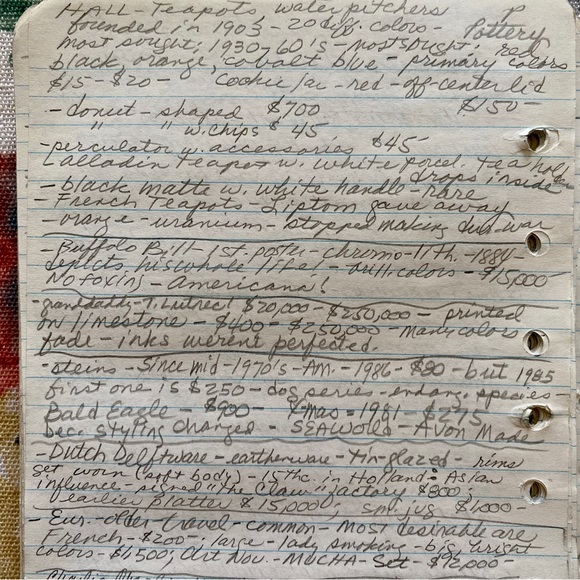 HALL - Teapots, water pitchers P
founded in 1903 - 20 diff. colors - Pottery
most sought, 1930-60's - most sought; red
black, orange, cobalt blue - primary colors
$15 - $20 - Cookie jar - red - off-center lid
- donut - shaped $700 $150 -
" " w. chips $45
- perculator w. accessories $45
Lalladin Teapot w. white porcel. tea
drops inside
- black matte w. white handle - rare
- French Teapots - Liptom gave away
- orange - uranium - stopped making dur. war
- Buffalo Bill - 1st. poster - chromo-lith. - 1884 -
depicts his whole life! - brill. colors - $15,000
No foxing - Americana!
- granddaddy - T. Lutrec! $20,000 - $250,000 - printed
on limestone - $400 - $250,000 - many colors
fade - inks weren't perfected.
- steins - Since mid-1970's - Am. - 1986 - $80 - but 1985
first one is $250 - dog series - endang. species -
Bald Eagle - $900 - Xmas - 1981 - $275
bec. styling changed - Avon Made
- Dutch Delftware - earthenware - tin-glazed - rims
set worn (soft body) - 15thc. in Holland - Asian
influence - signed "the Claw" factory $800;
earlier platter $15,000; sm. jug $1,000 -
- Eur. older travel - common - Most desirable are
French - $200 - large - lady smoking - big, bright
colors - $1,500; Art Nov. - MUCHA - Set - $12,000 -